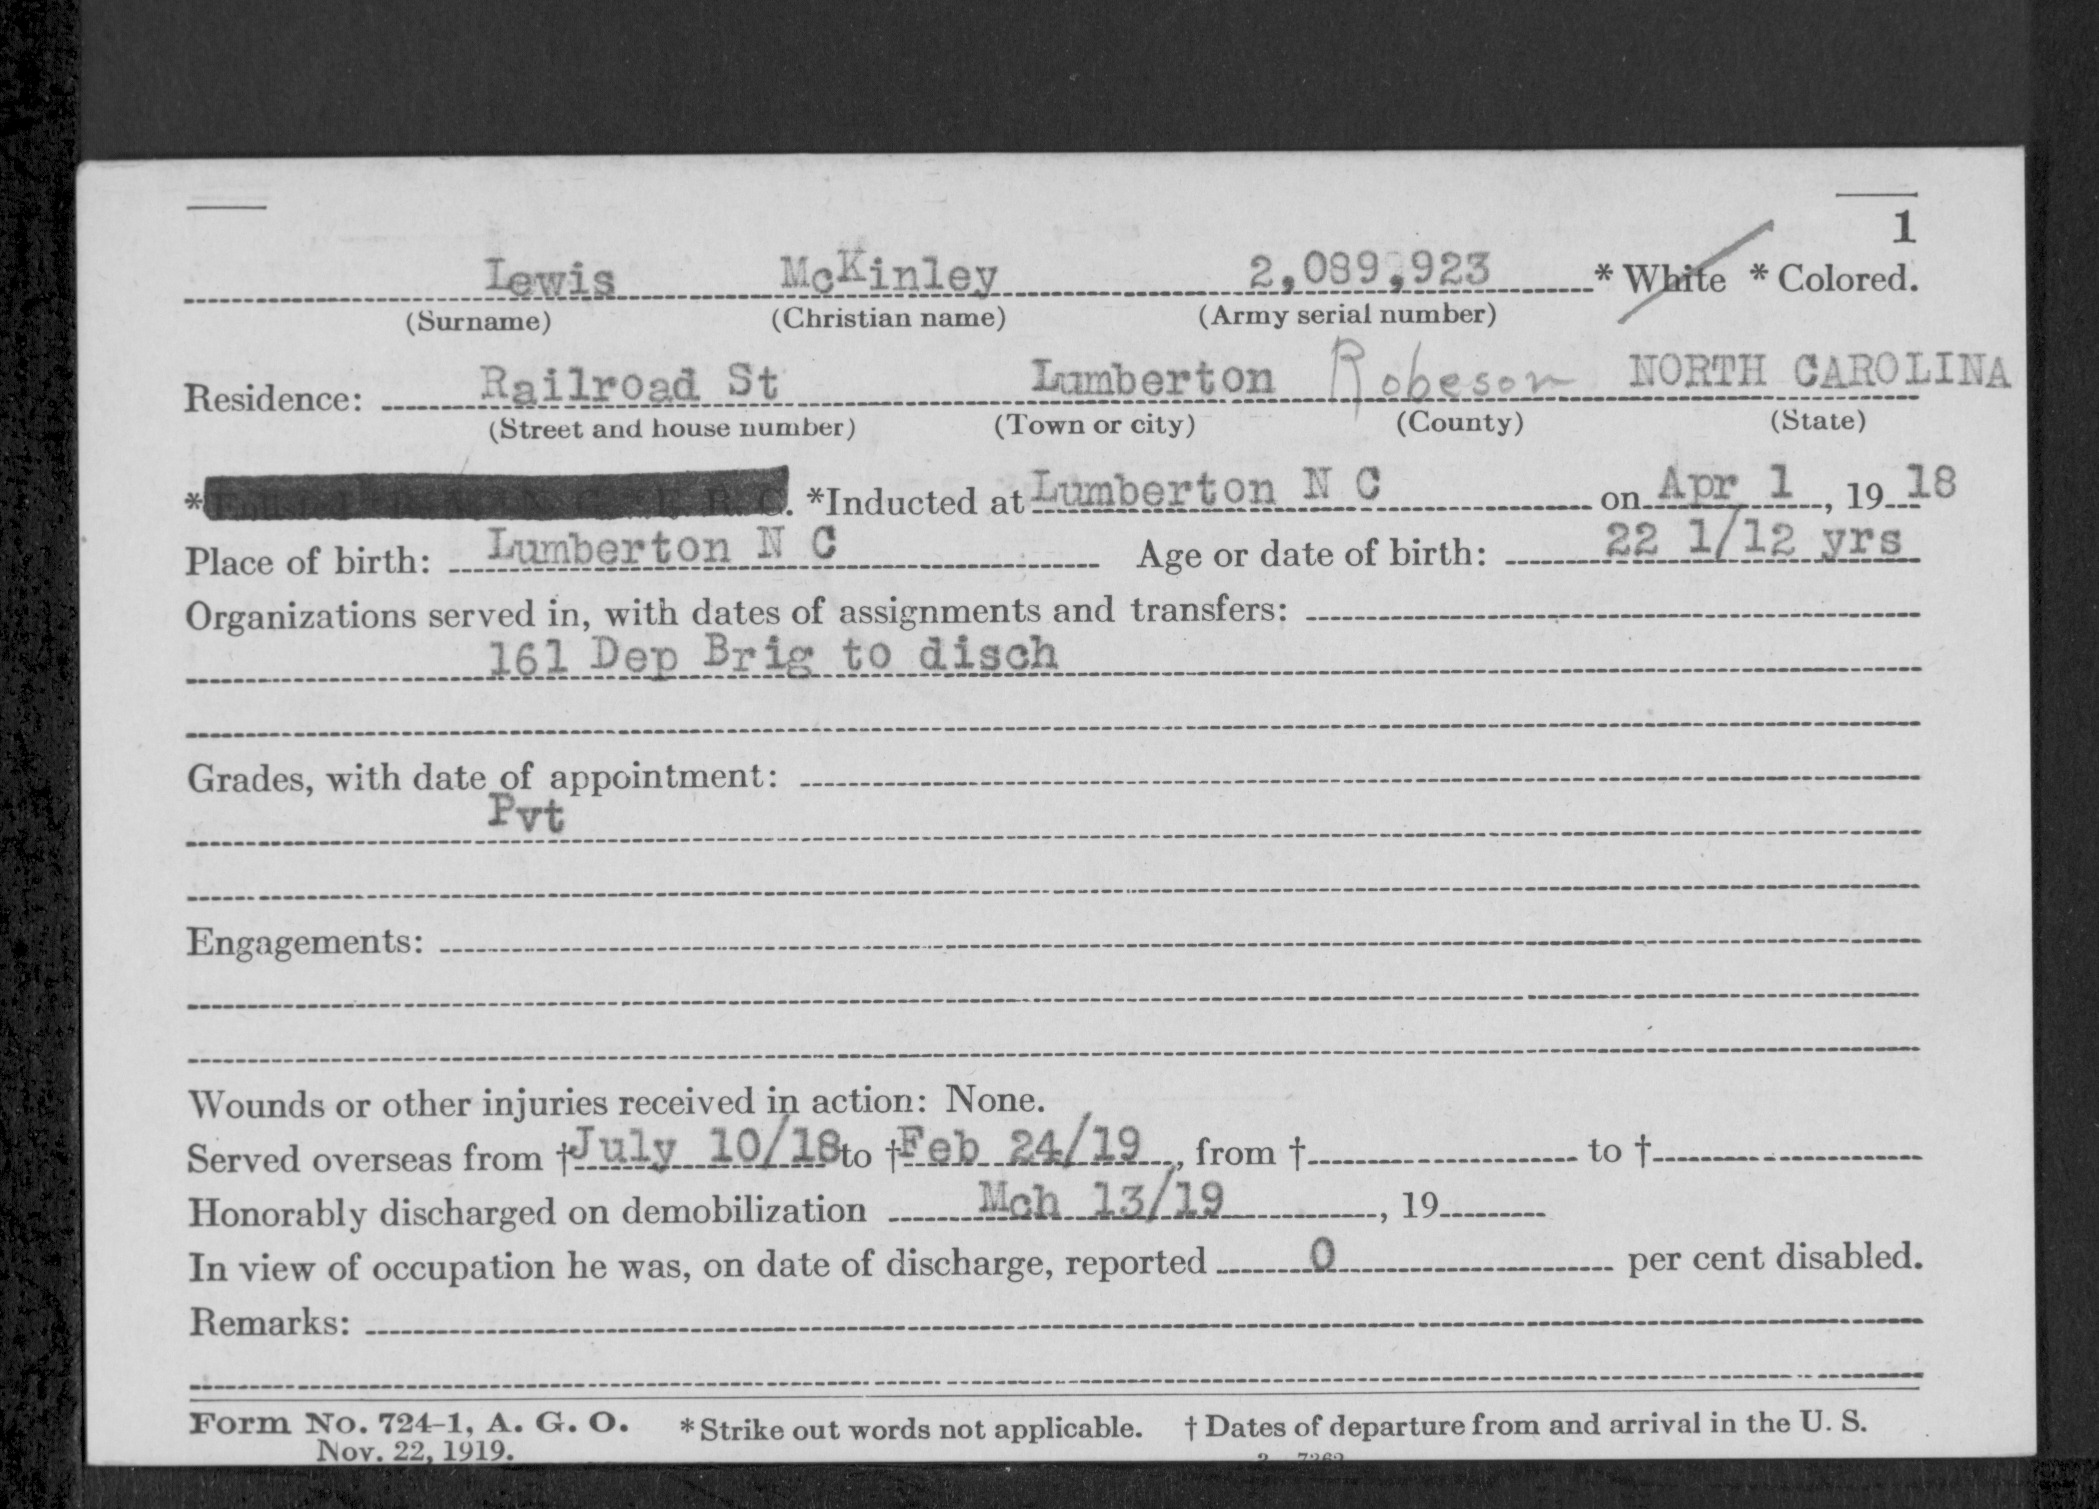 1
Lewis McKinley 2,089,923 * White * Colored.
(Surname) (Christian name) (Army serial number)
Residence: Railroad St Lumberton Robeson NORTH CAROLINA
(Street and house number) (Town or city) (County) (State)
* Enlisted N. G. E. R. C. *Inducted at Lumberton N C on Apr 1, 1918
Place of birth: Lumberton N C Age or date of birth: 22 1/12 yrs
Organizations served in, with dates of assignments and transfers:
161 Dep Brig to disch
Grades, with date of appointment:
Pvt
Engagements:
Wounds or other injuries received in action: None.
Served overseas from †July 10/18 to †Feb 24/19, from † to †
Honorably discharged on demobilization Mch 13/19, 19
In view of occupation he was, on date of discharge, reported 0 per cent disabled.
Remarks:
Form No. 724-1, A. G. O. *Strike out words not applicable. † Dates of departure from and arrival in the U. S.
Nov. 22, 1919.